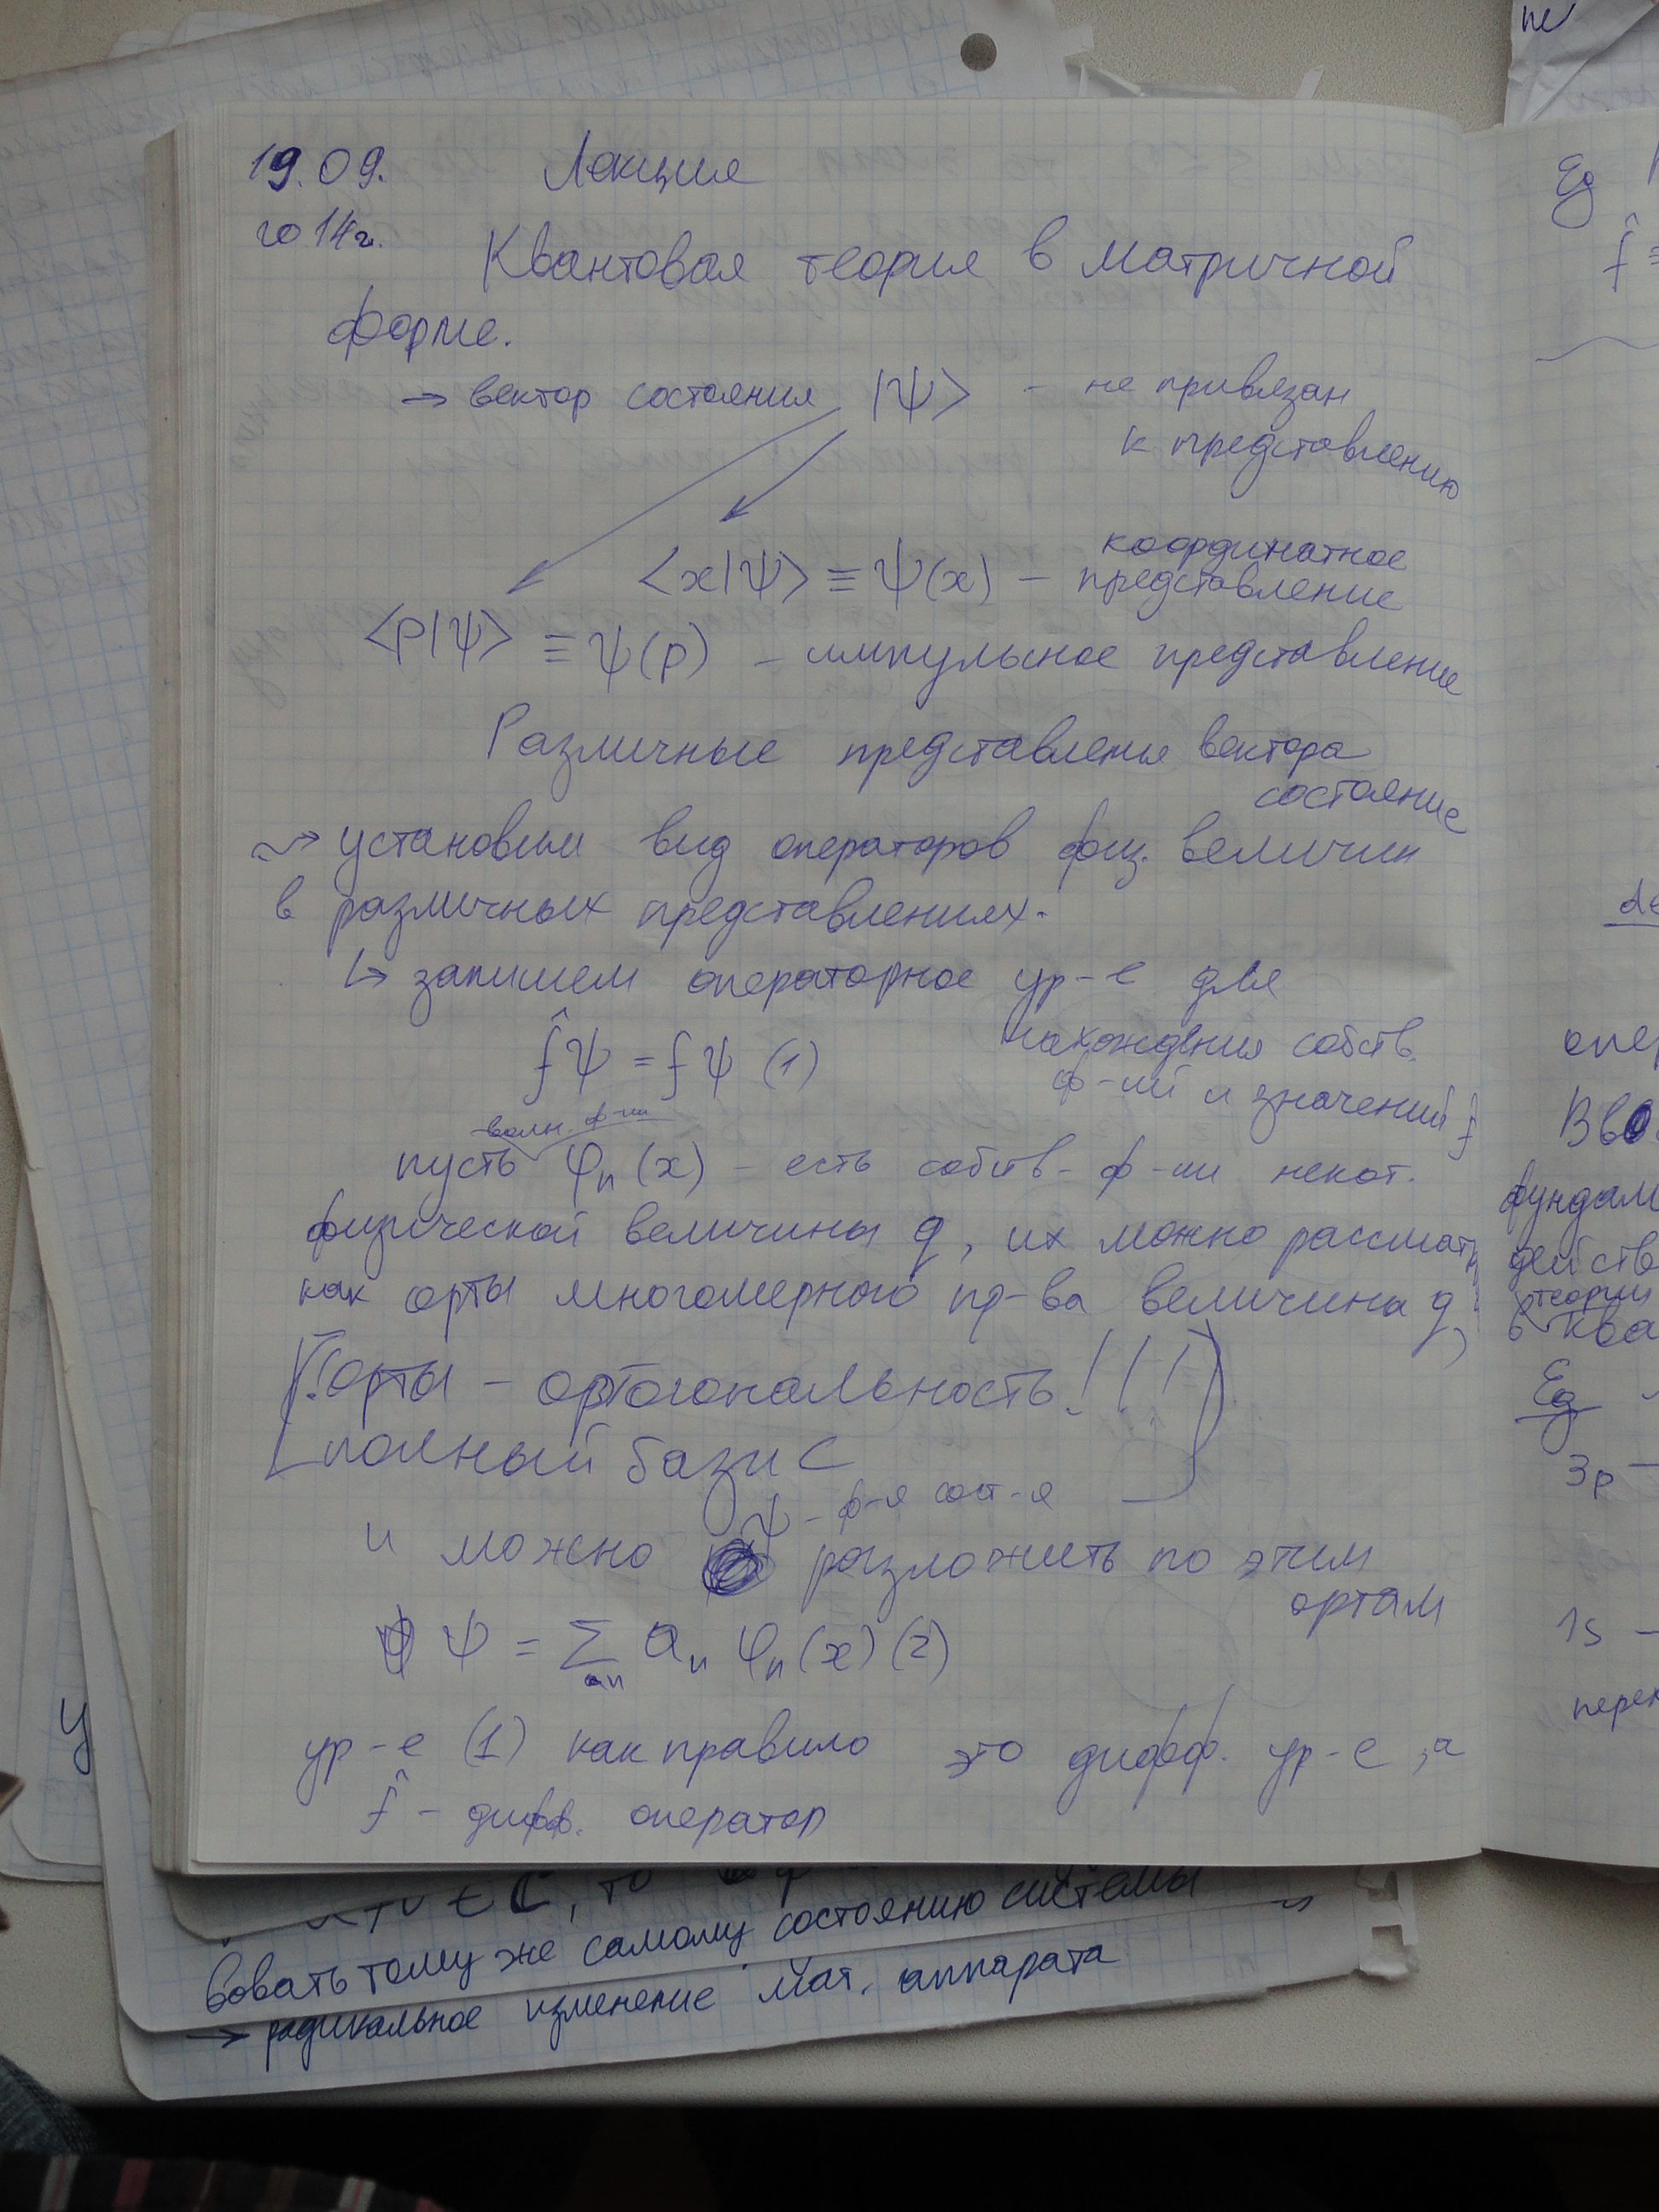 19.09. Лекция
2014г.
Квантовая теория в матричной
форме.
→ вектор состояния |ψ> - не привязан
к представлению
<x|ψ> ≡ ψ(x) - координатное
представление
<p|ψ> ≡ ψ(p) - импульсное представление
Различные представления вектора
состояние
~> установим вид операторов физ. величин
в различных представлениях.
↳ запишем операторное ур-е для
нахождения собств.
f̂ψ = fψ (1)
ф-ий и значений f̂
волн. ф-ии
пусть φₙ(x) - есть собств- ф-ии некот.
физической величины q, их можно рассматр
как орты многомерного пр-ва величины q,
орты - ортогональность!!!
полный базис
ψ - ф-я сост-я
и можно разложить по этим
ортам
ψ = Σₙ aₙ φₙ(x) (2)
ур-е (1) как правило это дифф. ур-е, а
f̂ - дифф. оператор
Ед
f̂ ≡
de
опер
Вво
фундам
действ
теории
в ква
Ед
3p -
1s -
перех
не
у
вовать тому же самому состоянию системы
→ радикальное изменение мат. аппарата